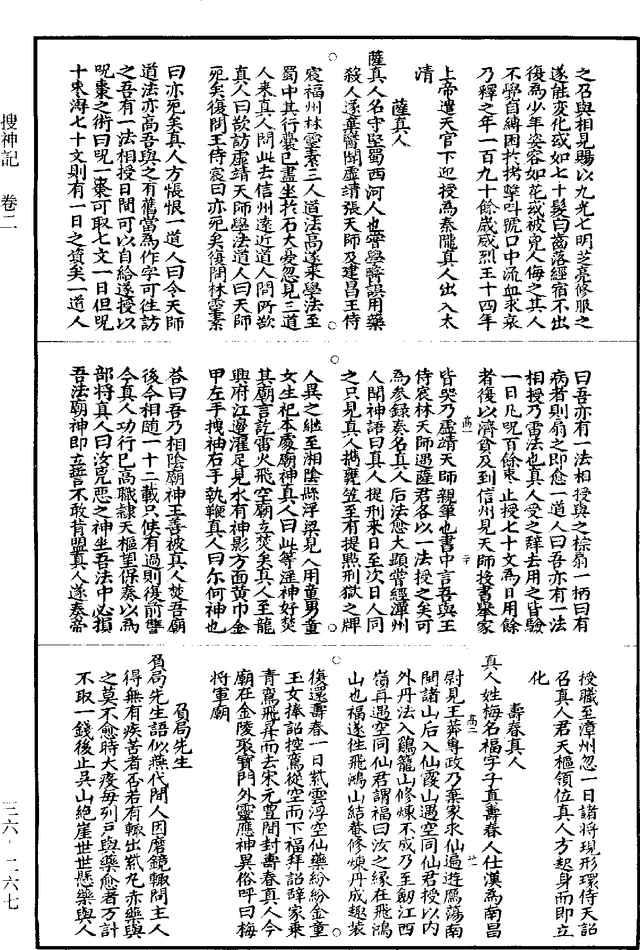 之召與相見賜以九光七明芝亮修服之
遂能變化或如七十髮白齒落經宿不出
復為少年姿容如花或被兒人侮之其人
不覺自縛困於拷擊叫號口中流血求哀
乃釋之年一百九十餘歲威烈王十四年
上帝遣天官下迎授為秦隴真人出入太
清
薩真人
薩真人名守堅蜀西河人也甞學醫誤用藥
殺人遂棄醫聞虛靖張天師及建昌王侍
宸福州林靈素三人道法高遂來學法至
蜀中其行囊已盡坐於石大憂忽見三道
人來真人問此去信州遠近道人問所欲
真人曰欲訪虛靖天師學法道人曰天師
死矣復問王侍宸曰亦死矣復問林靈素
曰亦死矣真人方悵恨一道人曰今天師
道法亦高吾與之有舊當為作字可往訪
之吾有一法相授日間可以自給遂授以
呪棗之術曰呪一棗可取七文一日但呪
十棗淂七十文則有一日之資矣一道人
曰吾亦有一法相授與之棕扇一柄曰有
病者則扇之即愈一道人曰吾亦有一法
相授乃雷法也真人受之辭去用之皆驗
一日凡呪百餘棗止授七十文為日用餘
者復以濟貧及到信州見天師投書舉家
皆哭乃虛靖天師親筆也書中言吾與王
侍宸林天師遇薩君各以一法授之矣可
為參錄奏名真人后法愈大顯嘗經潭州
人聞神語曰真人提刑來日至次日人同
之只見真人携甕笠至有提㸃刑獄之牌
人異之継至湘陰縣浮梁見人用童男童
女生祀本處廟神真人曰此等淫神好焚
其廟言訖雷火飛空廟立焚矣真人至龍
興府江邊濯足見水有神影方面黃巾金
甲左手拽袖右手執鞭真人曰尒何神也
荅曰吾乃相陰廟神王善被真人焚吾廟
後今相随一十二載只候有過則復前讐
今真人功行已高職隸天樞望保奏以為
部將真人曰汝兇悪之神坐吾法中必損
吾法廟神即立誓不敢背盟真人遂奏帝
授職至漳州忽一日諸將現形環侍天詔
召真人君天樞領位真人方起身而即立
化
壽春真人
真人姓梅名福字子真壽春人仕漢為南昌
尉見王莽專政乃棄家求仙遍遊鴈蕩南
閩諸山后入仙霞山遇空同仙君授以内
外丹法入鷄籠山修煉不成乃至劒江西
嶺再遇空同仙君謂福曰汝之縁在飛鴻
山也福遂徃飛鴻山結菴修煉丹成趣装
復還壽春一日紫雲浮空仙藥紛紛金童
玉女捧詔控鸞從空而下福拜詔辞家乗
青鸞飛昇而去宋元豐間封壽春真人今
廟在金陵聚寳門外靈應神異俗呼曰梅
將軍廟
負局先生
負局先生語似燕代間人因磨鏡輙問主人
得無有疾苦者否若有輙出紫丸赤藥與
之莫不愈時大疫每列戸與藥愈者万計
不取一錢後止吳山絶崖世世懸藥與人
搜神記　卷二
三六-二六七
高一
高二